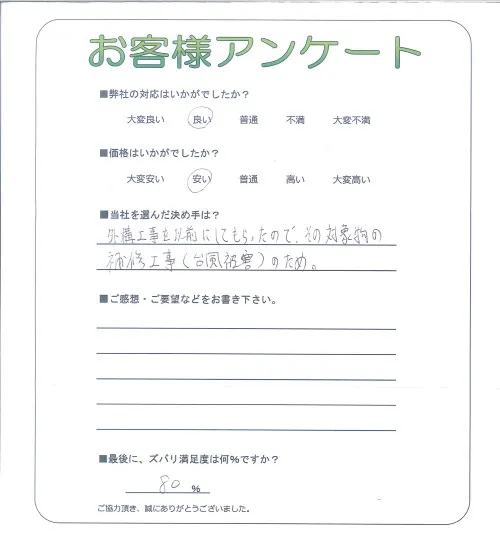 お客様アンケート
■弊社の対応はいかがでしたか？
大変良い 良い 普通 不満 大変不満
■価格はいかがでしたか？
大変安い 安い 普通 高い 大変高い
■当社を選んだ決め手は？
外構工事を以前にしてもらったので、その対象物の
補修工事(台風被害)のため。
■ご感想・ご要望などをお書き下さい。
■最後に、ズバリ満足度は何%ですか？
80 %
ご協力頂き、誠にありがとうございました。